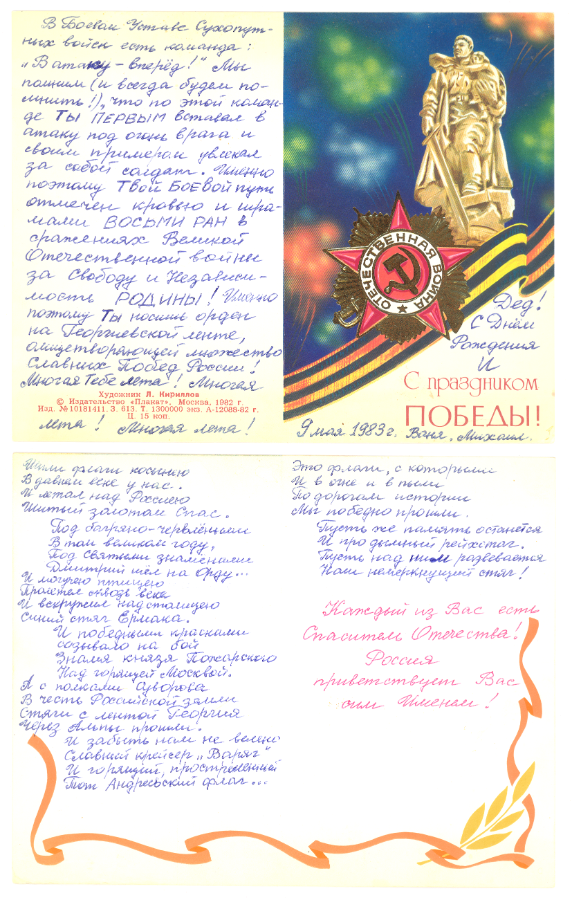 В Боевом Уставе Сухопут-
ных войск есть команда:
„В атаку – вперёд!" Мы
помним (и всегда будем по-
мнить!), что по этой коман-
де ТЫ ПЕРВЫМ вставал в
атаку под огонь врага и
своим примером увлекал
за собой солдат. Именно
поэтому Твой БОЕВОЙ путь
отмечен кровью и шра-
мами ВОСЬМИ РАН в
сражениях Великой
Отечественной войны
за Свободу и Независи-
мость РОДИНЫ! Именно
поэтому Ты носишь орден
на Георгиевской ленте,
олицетворяющей множество
Славных Побед России!
Многая Тебе лета! Многая
Художник Л. Кириллов
© Издательство «Планат». Москва, 1982 г.
Изд. №10181411. З. 613. Т. 1300000 экз. А-12088-82 г.
Ц. 15 коп.
лета! Многая лета!
ОТЕЧЕСТВЕННАЯ ВОЙНА
Дед!
С Днём
Рождения
И
С праздником
ПОБЕДЫ!
9 мая 1983 г. Ваня, Михаил.
Шили флаги косынкою
В давнем веке у нас.
И летал над Россиею
Шитый золотом Спас.
Под багряно-червлёными
В том великом году,
Под святыми знамёнами
Дмитрий шёл на Орду...
И могучею птицею
Пролетел сквозь века
И вскружил над столицею
Синий стяг Ермака.
И победными красками
созывало на бой
Знамя князя Пожарского
Над горящей Москвой.
А с полками Суворова
В честь Российской земли
Стяги с лентой Георгия
Через Альпы прошли.
И забыть нам не велено
Славный крейсер „Варяг"
И горящий, простреленный
Тот Андреевский флаг...
Это флаги, с которыми
И в огне и в пыли
По дорогам истории
Мы победно прошли.
Пусть же память останется
И про дымный рейхстаг.
Пусть над ним развевается
Наш немеркнущий стяг!
Каждый из Вас есть
Спаситель Отечества!
Россия
приветствует Вас
сим Именем!